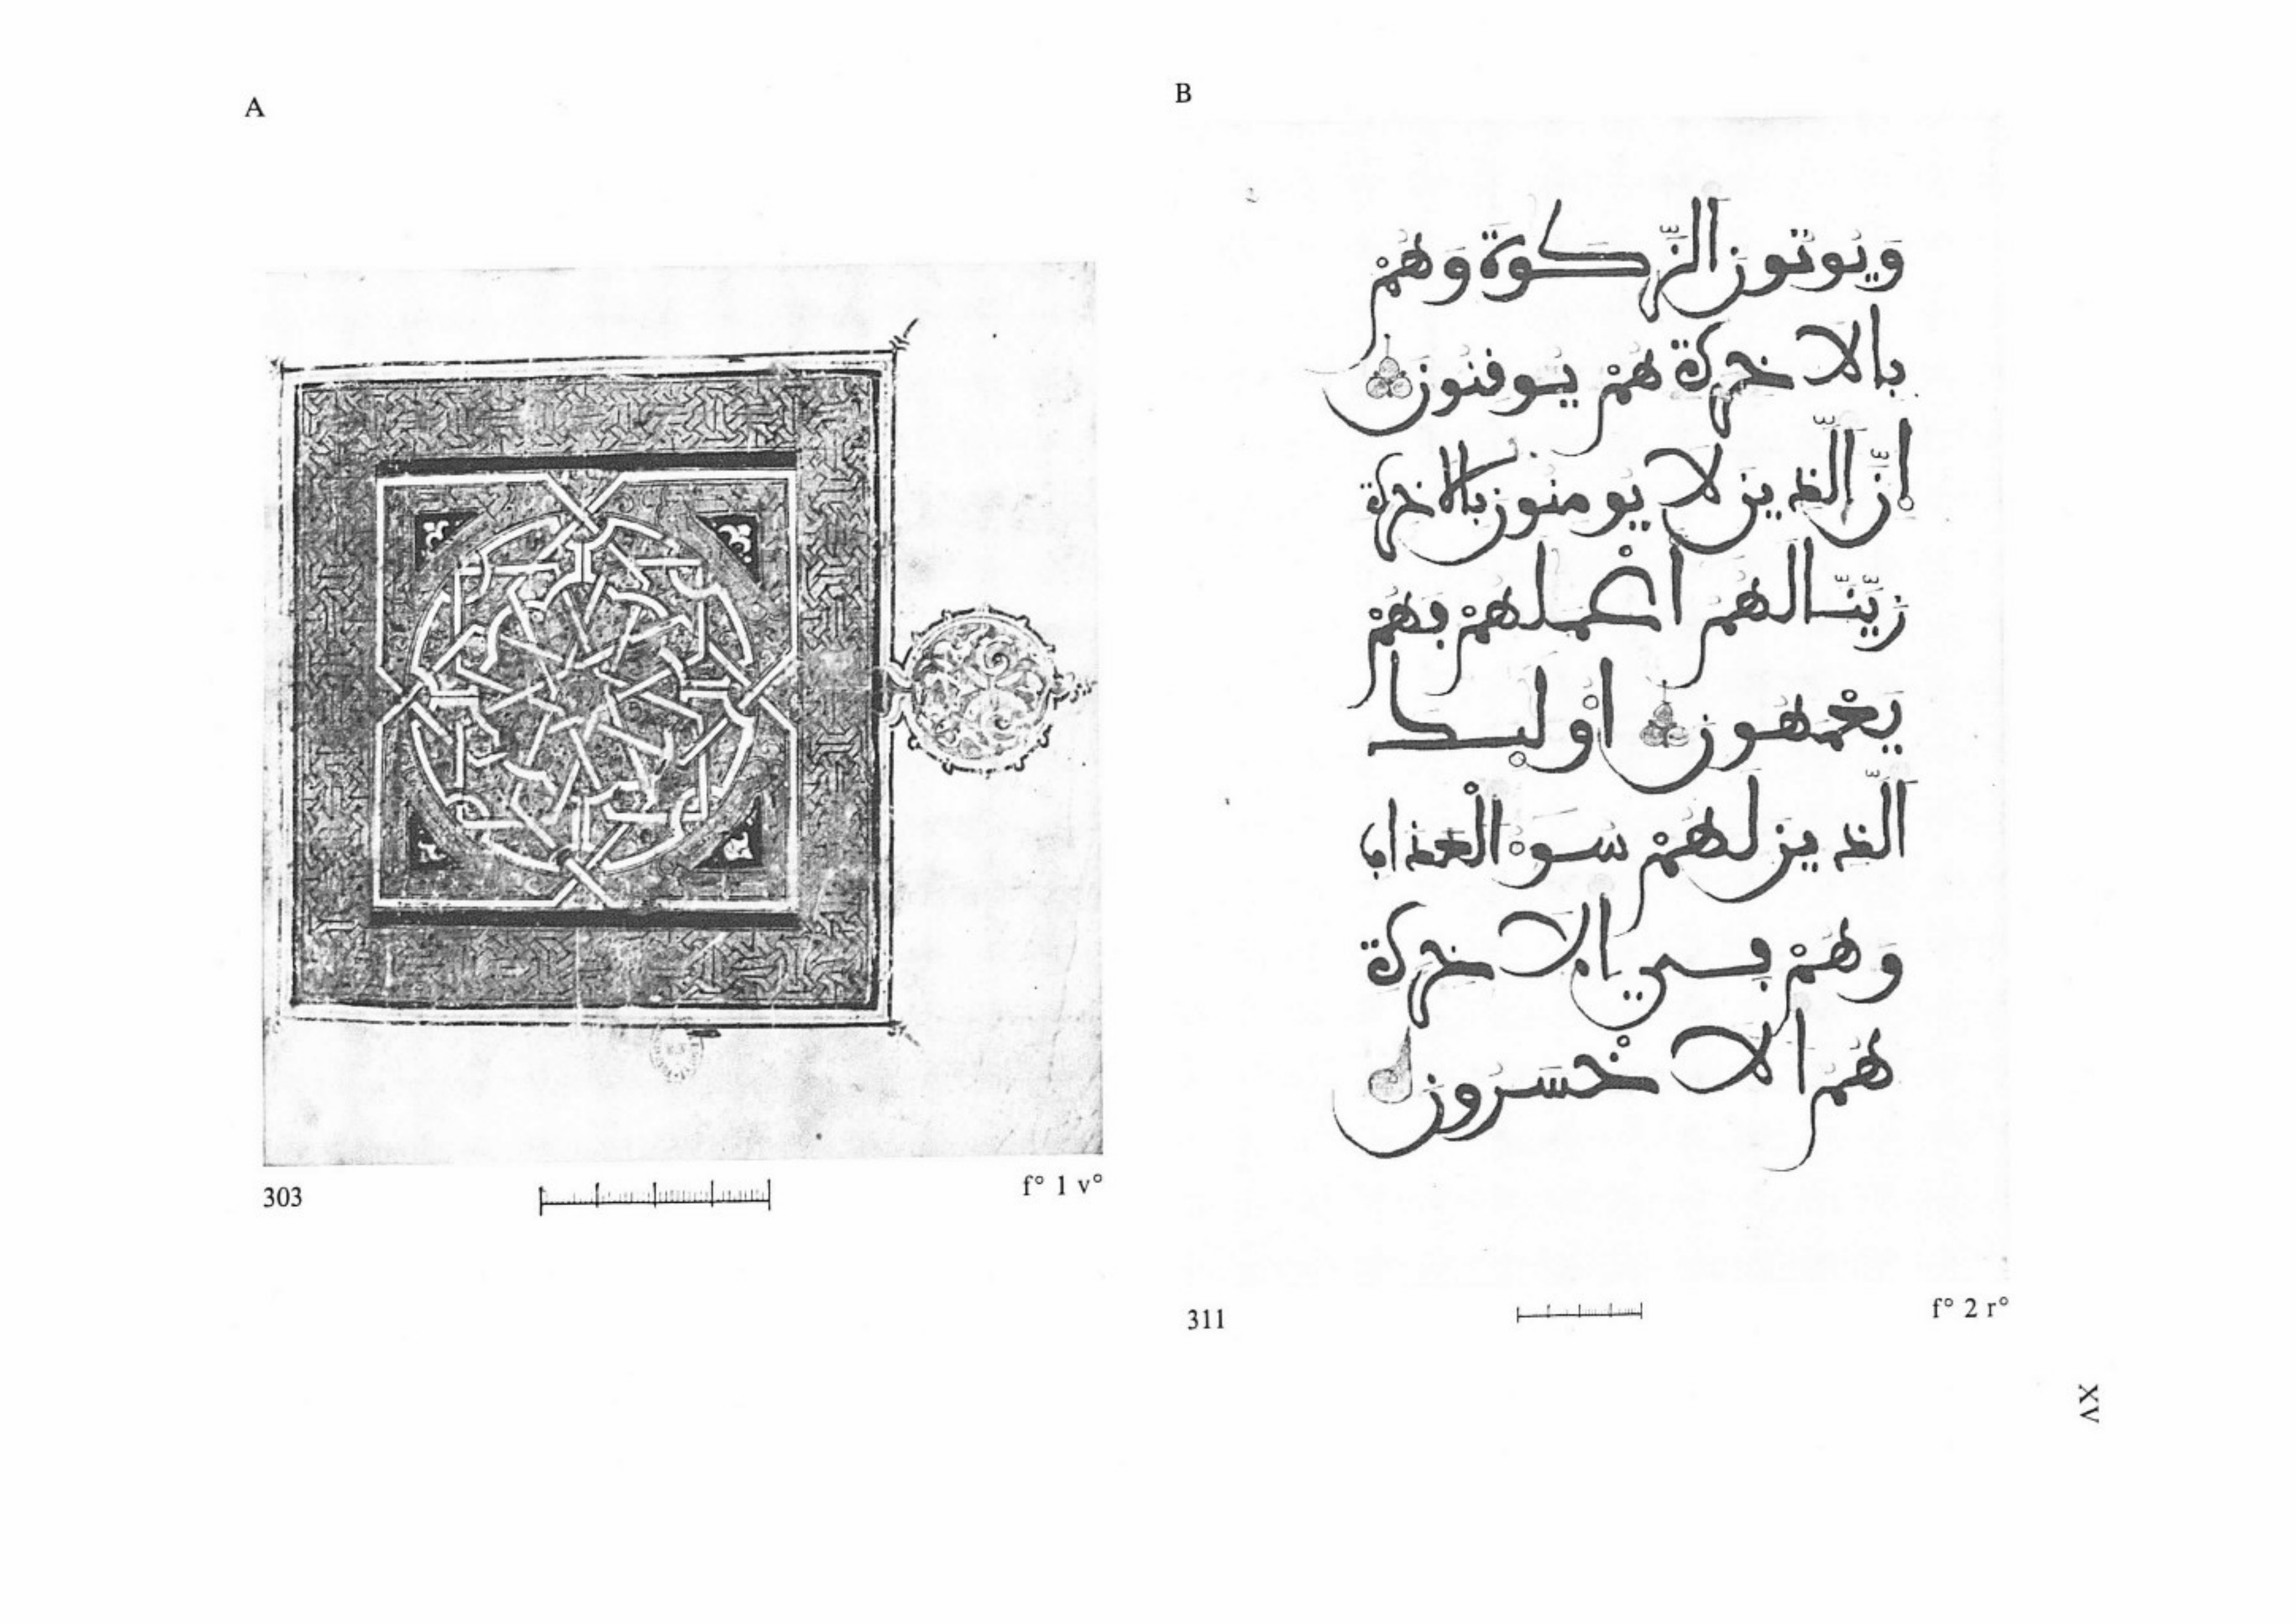 A
303
f° 1 v°
B
ويوتون الزكوة وهم
بالاخرة هم يوفنون
ان الذين لا يومنون بالاخرة
زينا لهم اعملهم بهم
يعمهون اوليك
الذين لهم سو العذاب
وهم في الاخرة
هم الاخسرون
311
f° 2 r°
XV